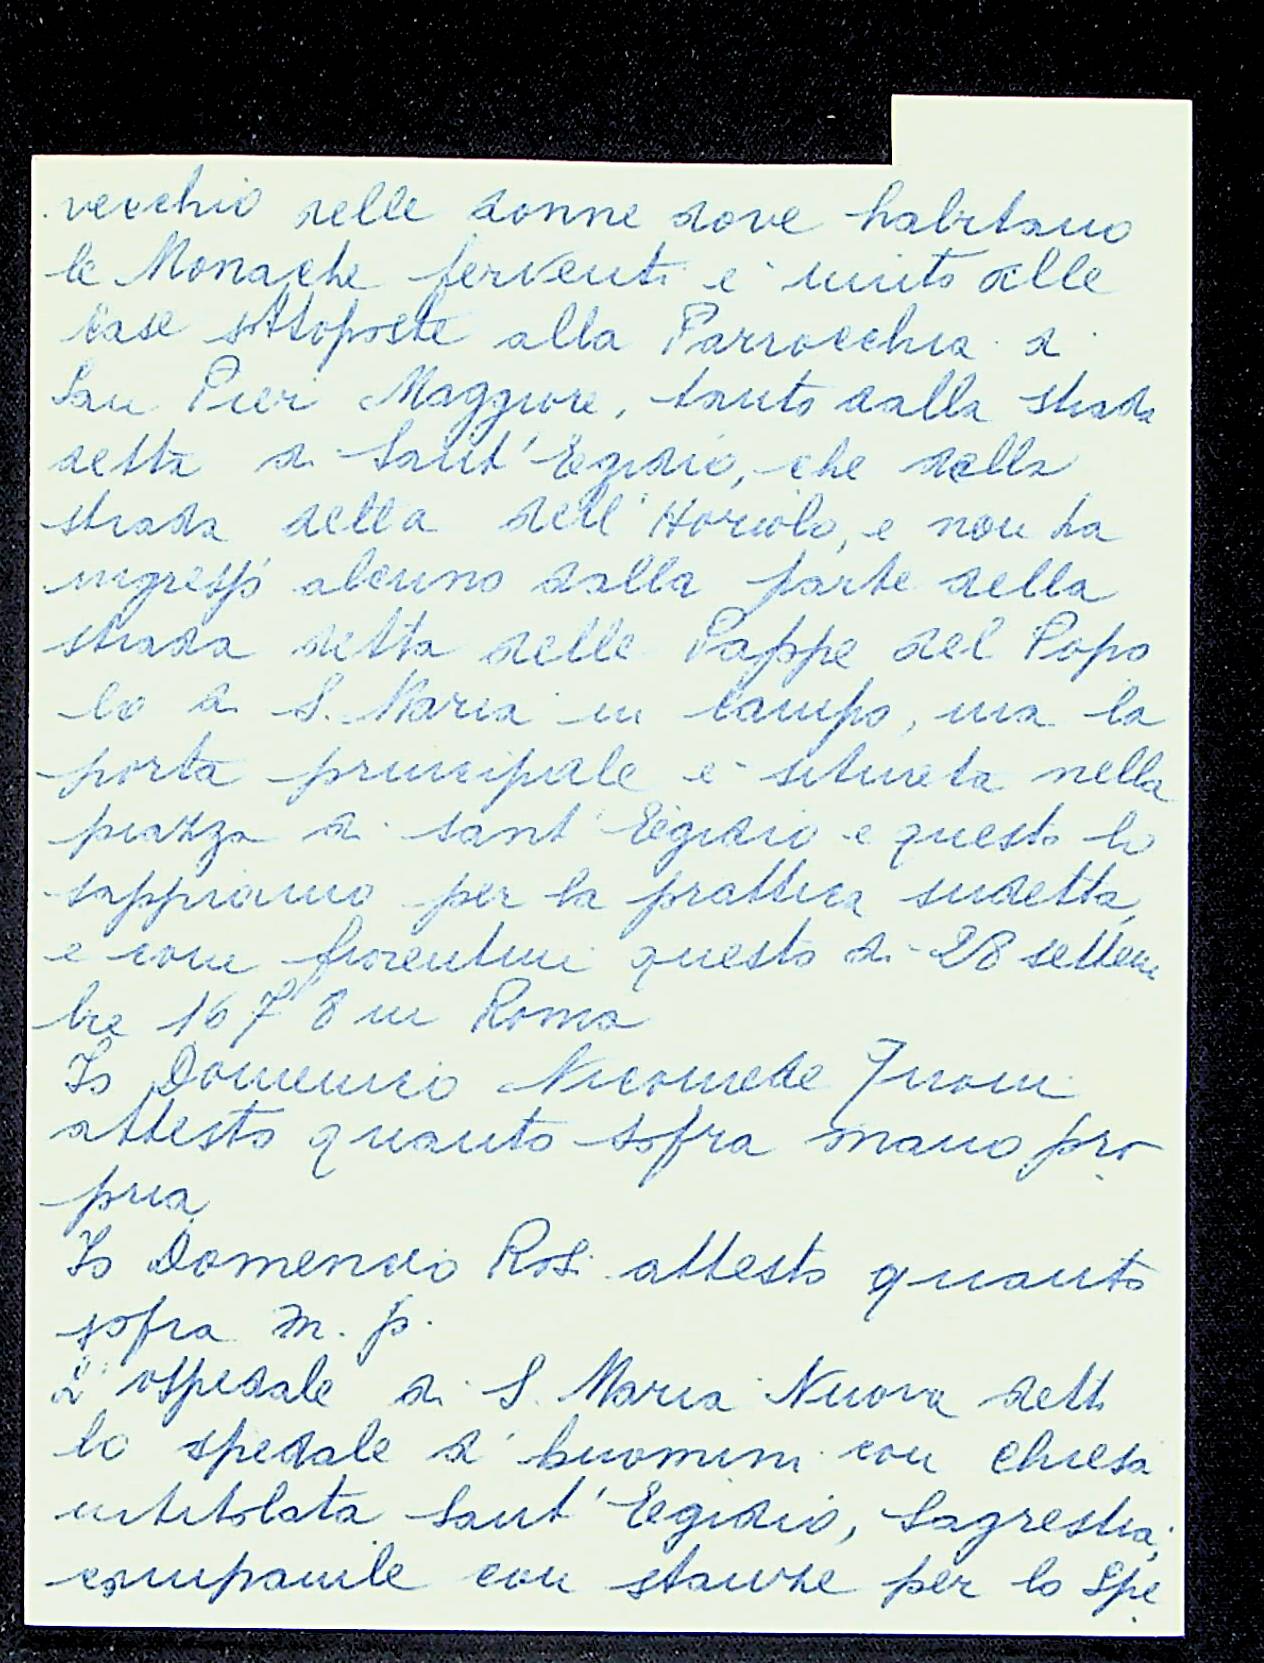 vecchio delle donne dove habitano
le Monache ferventi e' unito alle
Case sottoposte alla Parrocchia di
San Pier Maggiore, tanto dalla strada
detta di Sant' Egidio, che della
strada della dell' Horiolo, e non ha
ingresso alcuno dalla parte della
strada detta delle Pappe del Popo
lo di S. Maria in Campo, ma la
porta principale e' situata nella
piazza di sant' Egidio e questo lo
sappiamo per la prattica sudetta,
e come fiorentini questo di 28 settem
bre 1678 in Roma
Io Domenico Nicomede
attesto quanto sopra mano pro
pria
Io Domenico Rosi attesto quanto
sopra m. p.
L' ospedale di S. Maria Nuova detto
lo spedale d' huomini con chiesa
intitolata Sant' Egidio, Sagrestia,
campanile con stanze per lo Spe